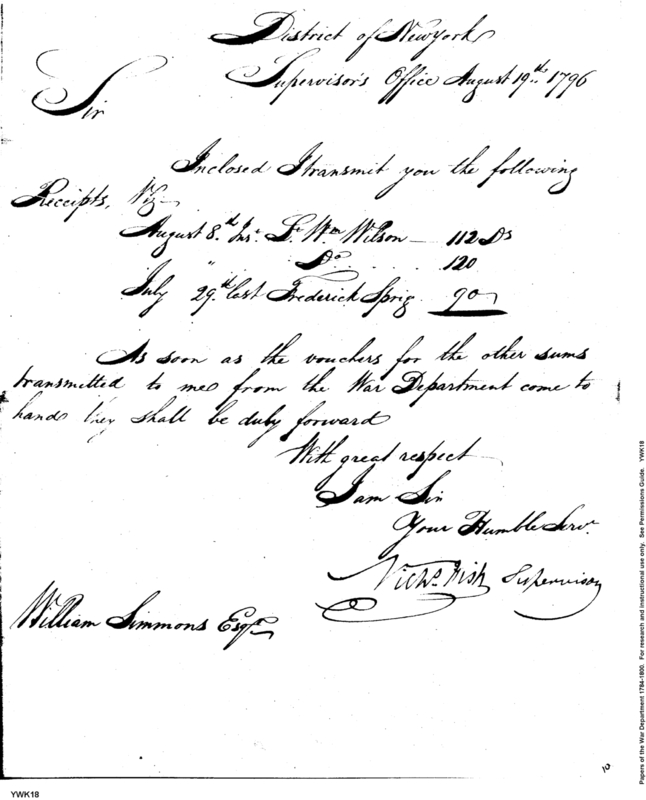 District of Newyork
Supervisor's Office August 19th 1796
Sir
Inclosed I transmit you the following
Receipts, Viz
August 8.th Inst. Lt Wm Wilson — 112 Ds
" Do . . . 120
July 29th last Frederick Sprig 90
As soon as the vouchers for the other sums
transmitted to me from the War Department come to
hand they shall be duly forward
With great respect
I am Sir
Your Humble Servt.
Nichs Fish Supervisor
William Simmons Esqr
10
YWK18
Papers of the War Department 1784-1800. For research and instructional use only. See Permissions Guide. YWK18